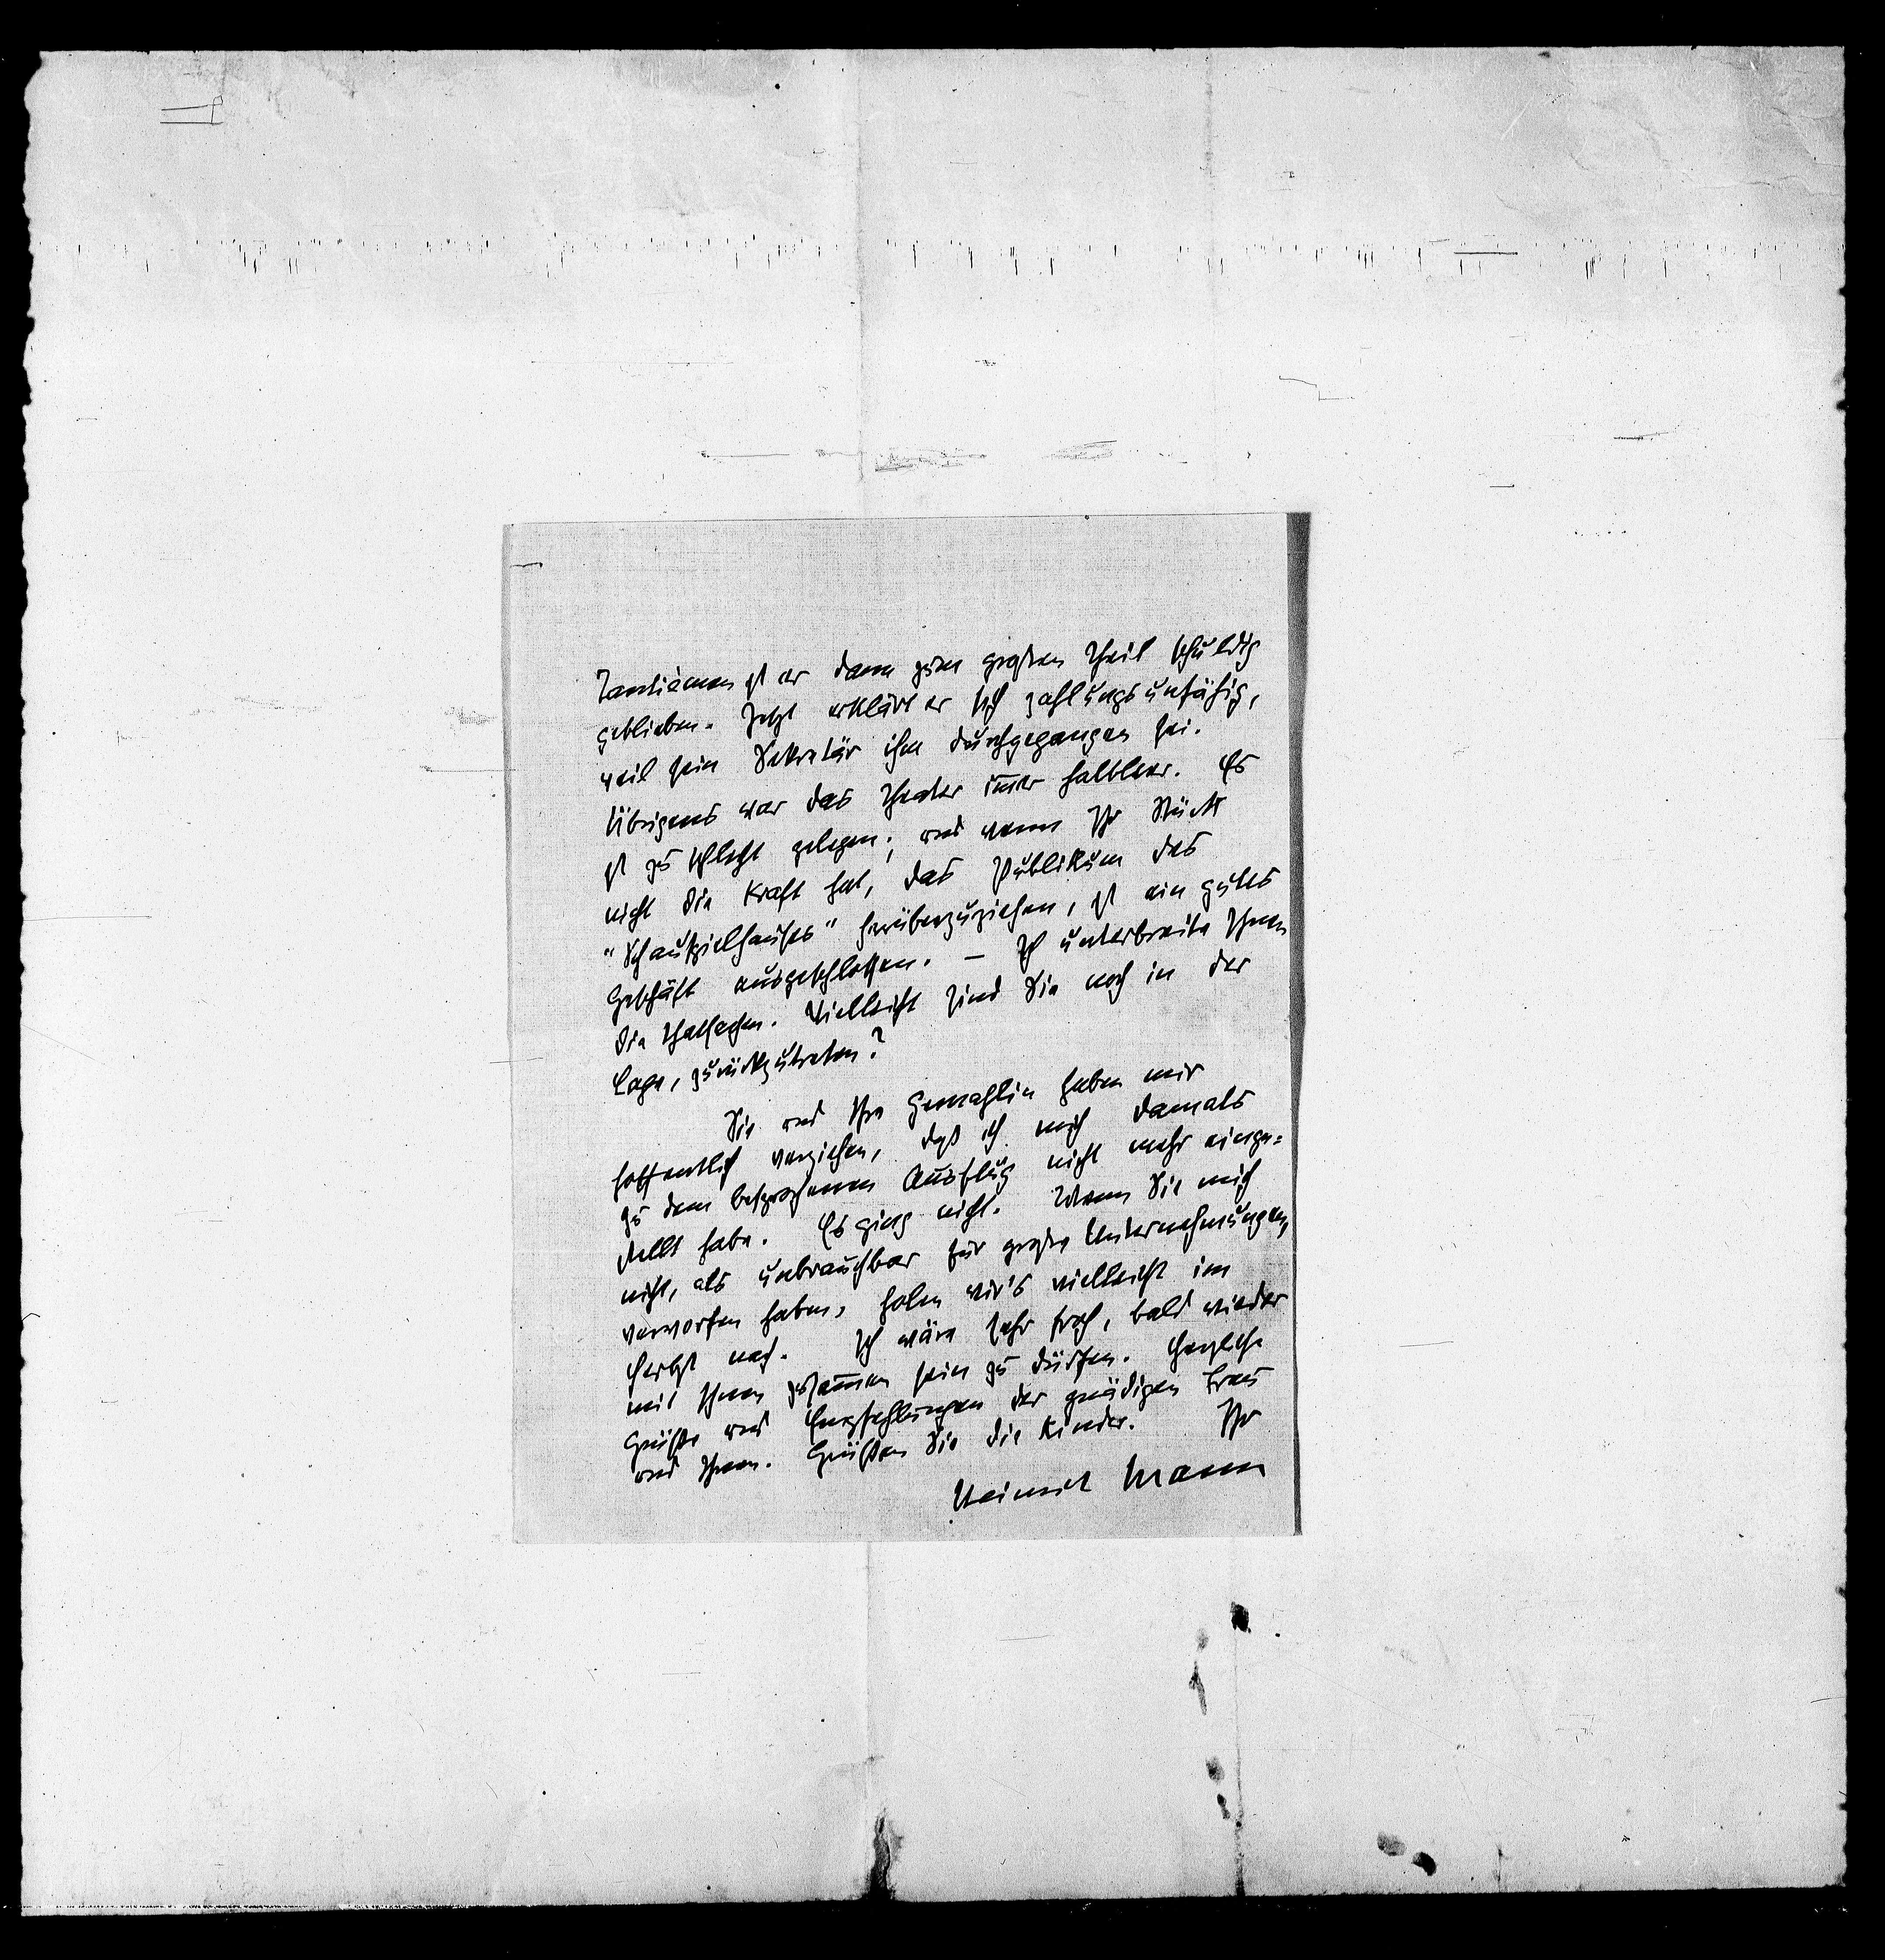 Tantièmen ist er dann zum großen Theil schuldig
geblieben. Jetzt erklärt er sich zahlungsunfähig,
weil sein Sekretär ihm durchgegangen sei.
Übrigens war das Theater im̅er halbleer. Es
ist zu schlecht gelegen; und wenn Ihr Stück
nicht die Kraft hat, das Publikum des
"Schauspielhauses" herüberzuziehen, ist ein gutes
Geschäft ausgeschlossen. – Ich unterbreite Ihnen
die Thatsachen. Vielleicht sind Sie noch in der
Lage, zurückzutreten?
Sie und Ihre Gemahlin haben mir
hoffentlich verziehen, daß ich mich damals
zu dem besprochenen Ausflug nicht mehr einge=
stellt habe. Es ging nicht. Wenn Sie mich
nicht, als unbrauchbar für große Unternehmungen,
verworfen haben, holen wir's vielleicht im
Herbst nach. Ich wäre sehr froh, bald wieder
mit Ihnen zusam̅en sein zu dürfen. Herzliche
Grüße und Empfehlungen der gnädigen Frau
und Ihnen. Grüßen Sie die Kinder. Ihr
Heinrich Mann